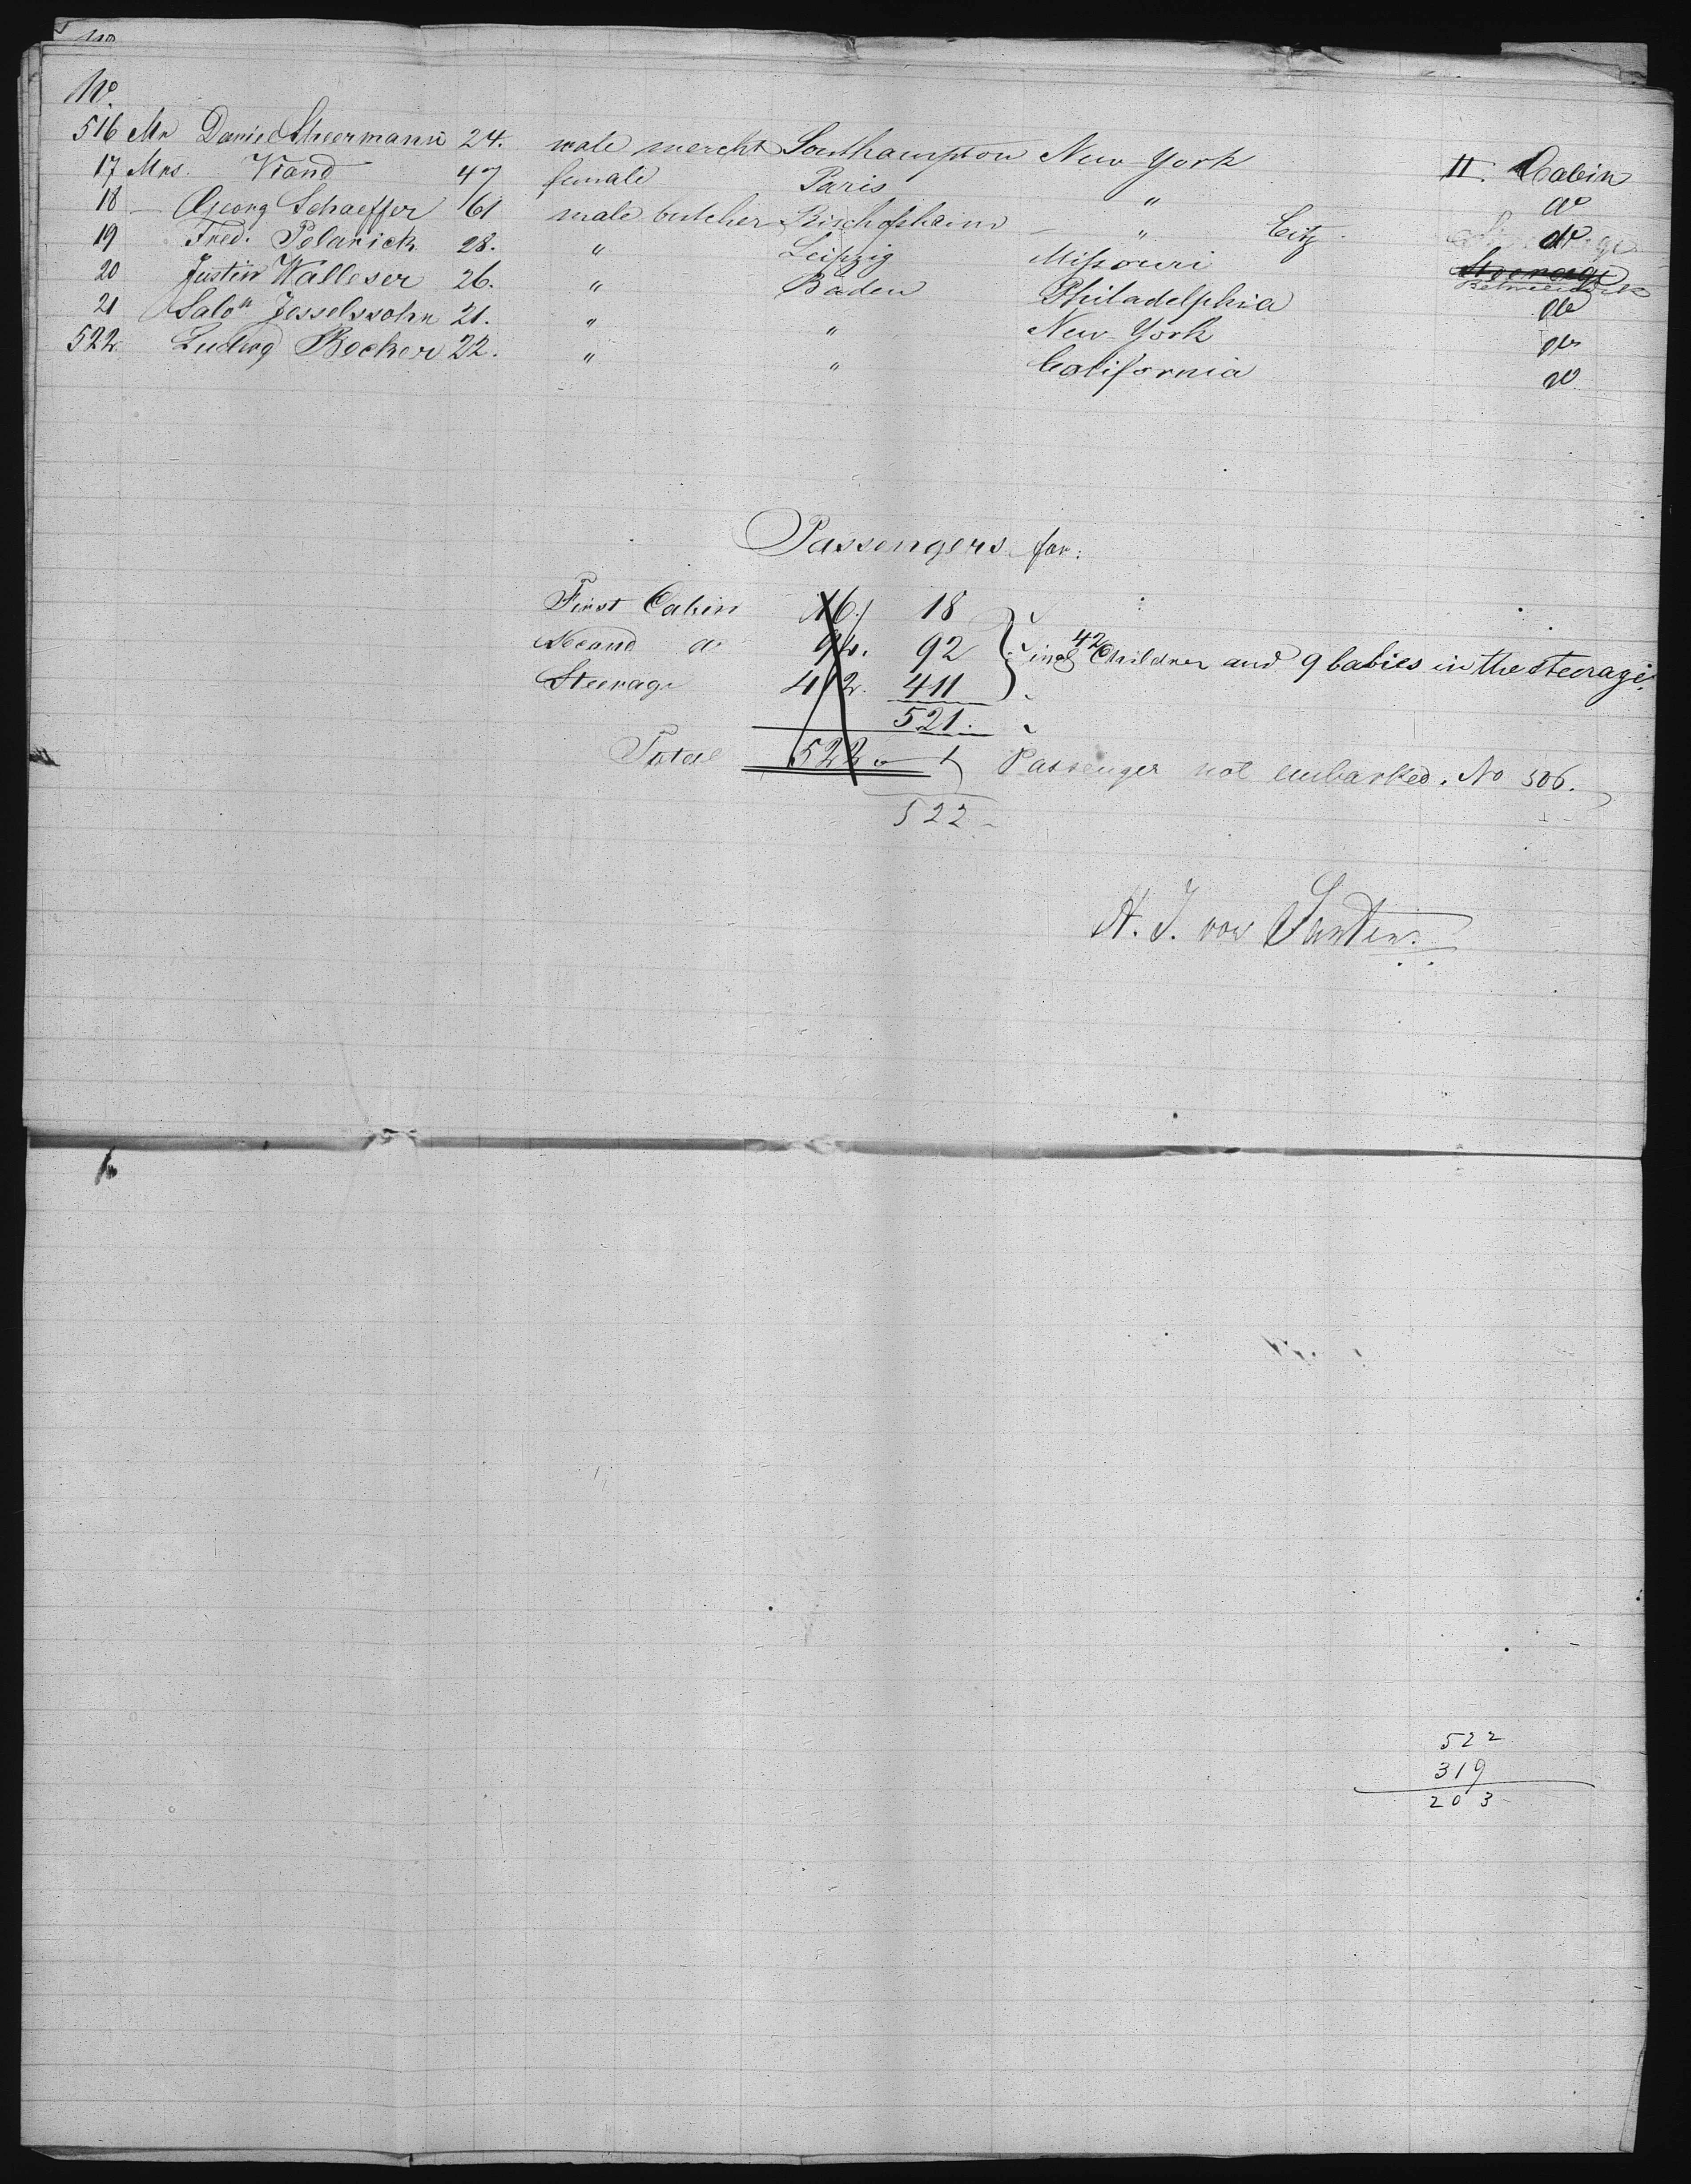 No.
516 Mr Daniel Scheermann 24. male mercht Southampton New York II. Cabin
17 Mrs. Viand 47 female Paris " do
18 — Georg Schaeffer 61 male butcher Bischofsheim — " City. do
19 Fred. Polarick 28. " Leipzig Missouri Steerage
20 Justin Walleser 26. " Baden Philadelphia do
21 Salon Josselssohn 21. " " New York do
522. Ludwg Becker 22. " " California do
Passengers for:
First Cabin 16. 18
Second do 94. 92 incl 42 Children and 9 babies in the steerage.
Steerage 412. 411
521.
Total 522 1 Passenger not embarked. No 506.
522
H. J. von Santen.
522
319
203